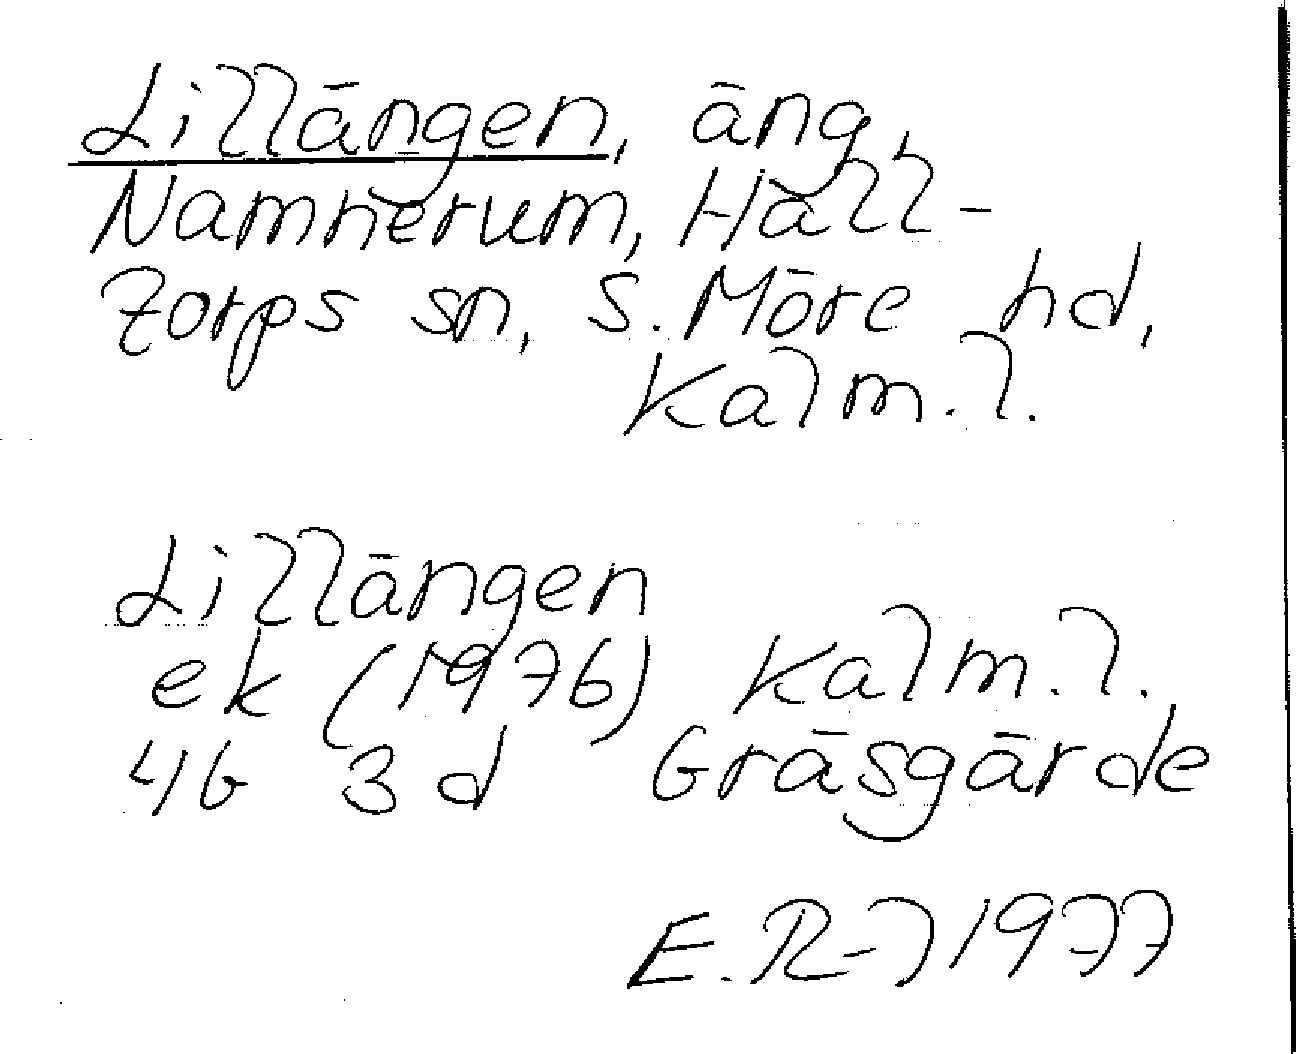 Lillängen, äng,
Namnerum, Hall-
torps sn, S. Möre hd,
Kalm. l.
Lillängen
ek (1976) Kalm. l.
4G 3d Gräsgärde
E. R-l 1977